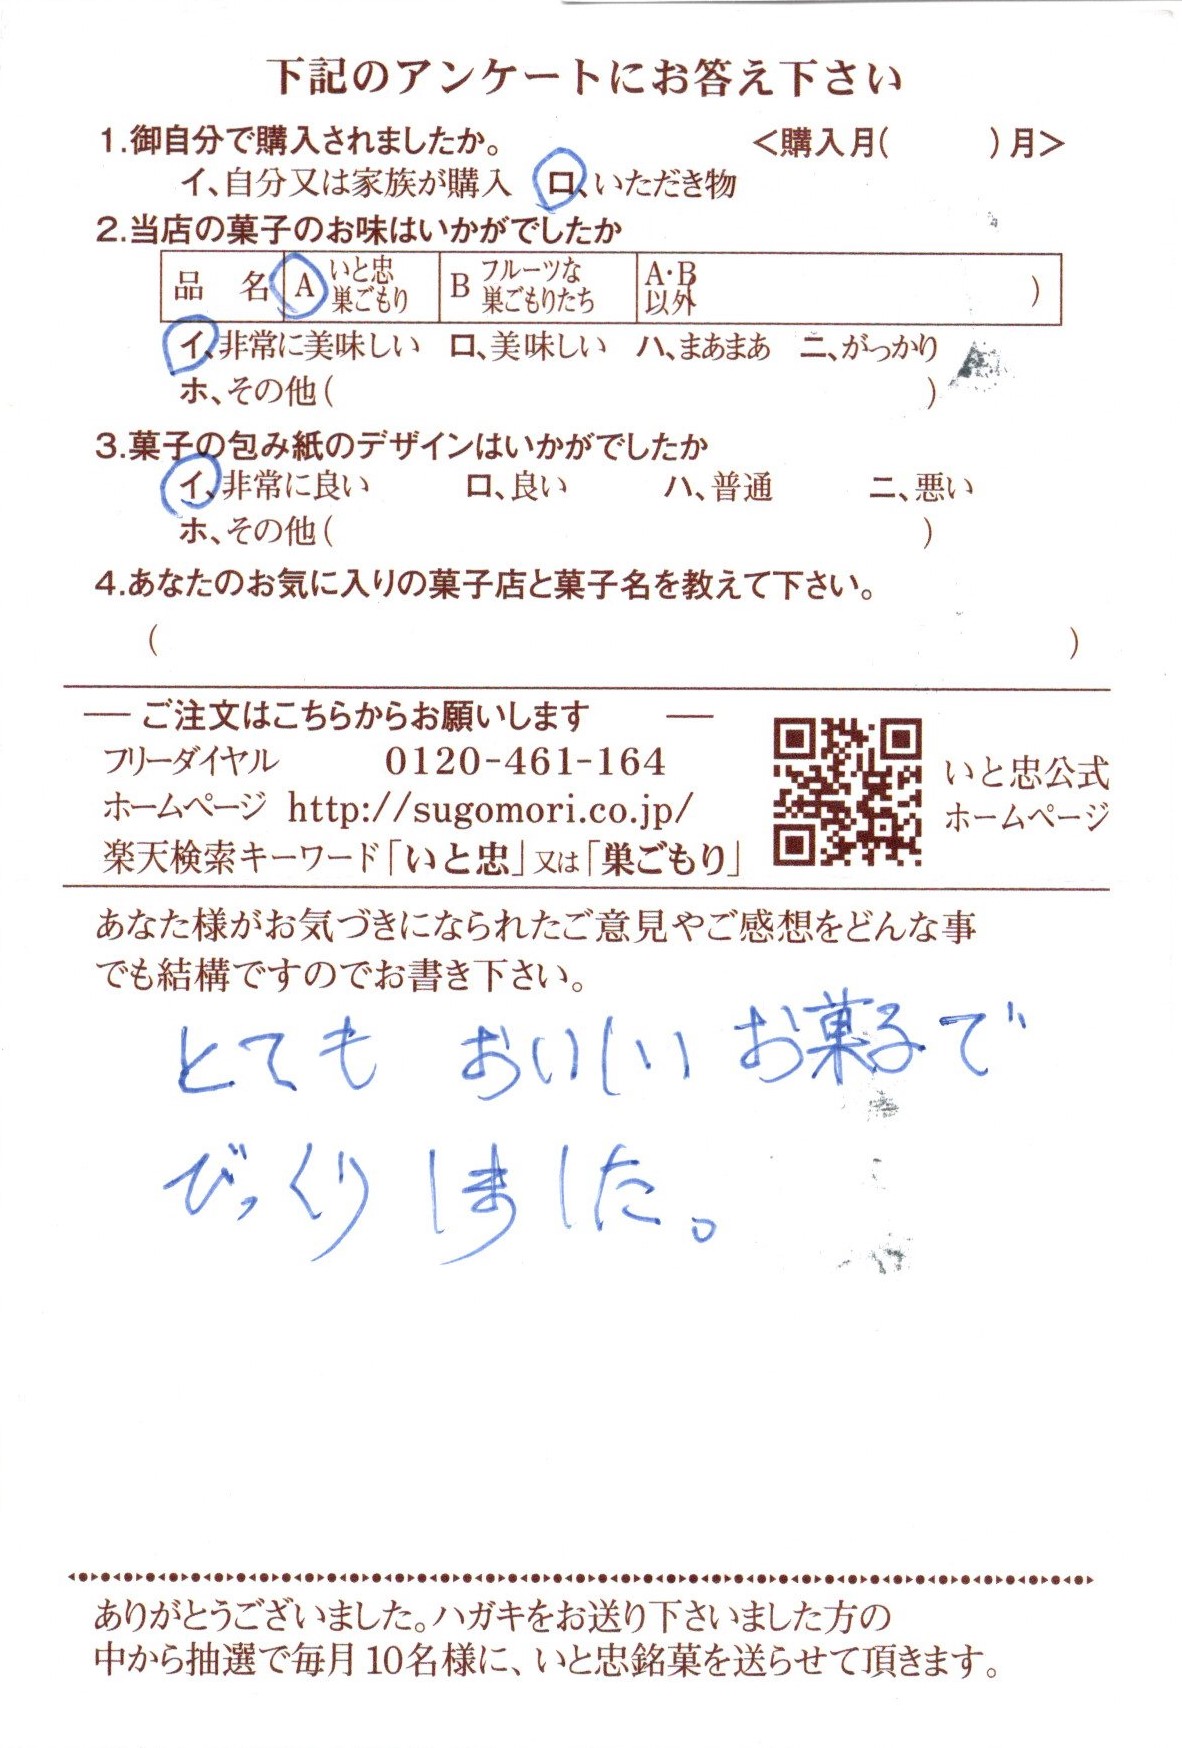 下記のアンケートにお答え下さい
1.御自分で購入されましたか。 <購入月( )月>
イ、自分又は家族が購入 ロ、いただき物
2.当店の菓子のお味はいかがでしたか
品 名 A いと忠 巣ごもり B フルーツな 巣ごもりたち A・B 以外 )
イ、非常に美味しい ロ、美味しい ハ、まあまあ ニ、がっかり
ホ、その他( )
3.菓子の包み紙のデザインはいかがでしたか
イ、非常に良い ロ、良い ハ、普通 ニ、悪い
ホ、その他( )
4.あなたのお気に入りの菓子店と菓子名を教えて下さい。
( )
― ご注文はこちらからお願いします ―
フリーダイヤル 0120-461-164
ホームページ http://sugomori.co.jp/
楽天検索キーワード「いと忠」又は「巣ごもり」
いと忠公式
ホームページ
あなた様がお気づきになられたご意見やご感想をどんな事
でも結構ですのでお書き下さい。
とても おいしい お菓子で
びっくりしました。
ありがとうございました。ハガキをお送り下さいました方の
中から抽選で毎月10名様に、いと忠銘菓を送らせて頂きます。